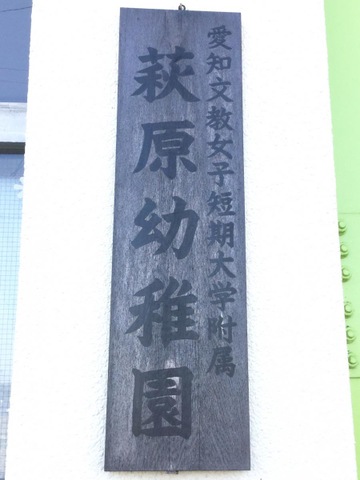 愛知文教女子短期大学附属
萩原幼稚園